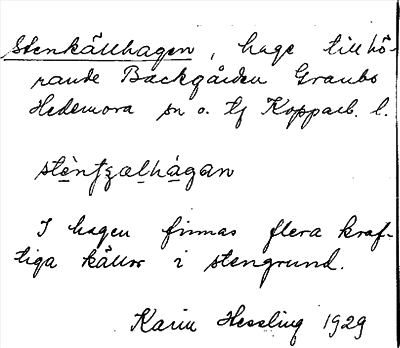 Stenkällhagen, hage tillhö-
rande Backgården Graubo
Hedemora sn o. tg Kopparb. l.
I hagen finnas flera kraf-
tiga källor i stengrund.
Karin Hessling 1929